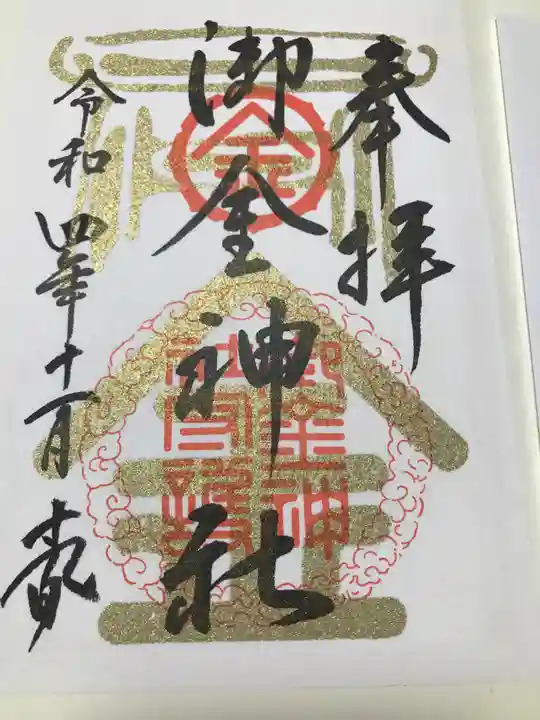 奉拝
御金神社
令和四年十一月
金
御金神